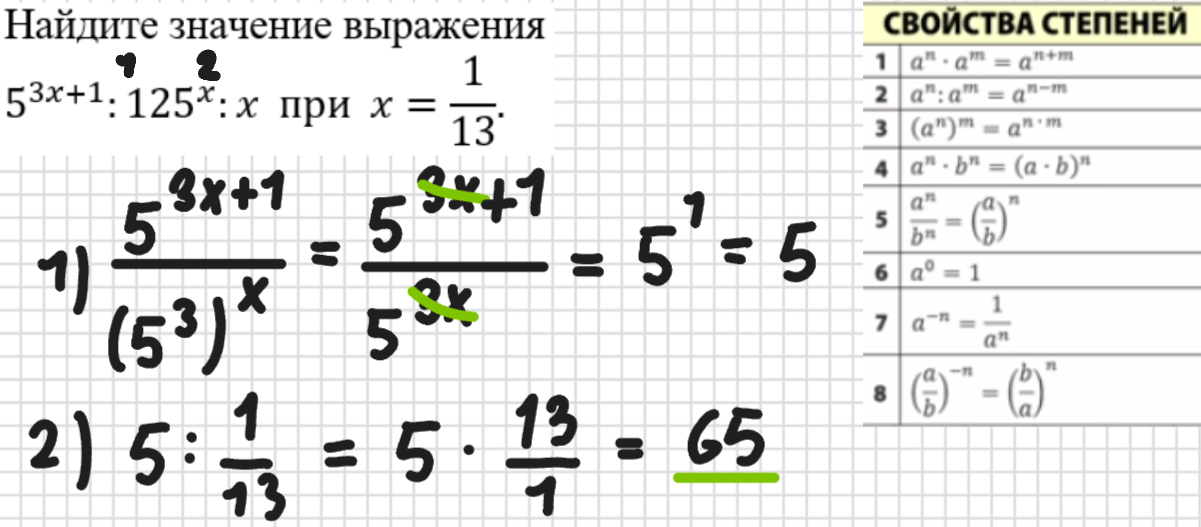 Найдите значение выражения
1 2
5^{3x+1} : 125^x : x при x = \frac{1}{13}.
1) \frac{5^{3x+1}}{(5^3)^x} = \frac{5^{3x+1}}{5^{3x}} = 5^1 = 5
2) 5 : \frac{1}{13} = 5 · \frac{13}{1} = 65
СВОЙСТВА СТЕПЕНЕЙ
1 a^n · a^m = a^{n+m}
2 a^n : a^m = a^{n−m}
3 (a^n)^m = a^{n·m}
4 a^n · b^n = (a · b)^n
5 \frac{a^n}{b^n} = (\frac{a}{b})^n
6 a^0 = 1
7 a^{−n} = \frac{1}{a^n}
8 (\frac{a}{b})^{−n} = (\frac{b}{a})^n